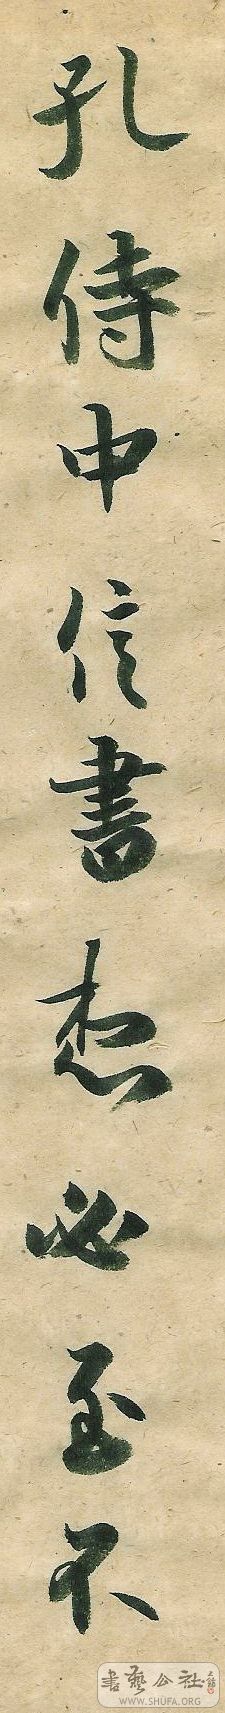 孔侍中信書想必至不
書藝公社
WWW.SHUFA.ORG